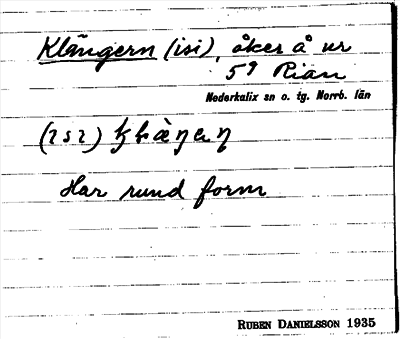 Klängern (isi), åker å nr
59 Rian
Nederkalix sn o. tg. Norrb. län
Har rund form
RUBEN DANIELSSON 1935